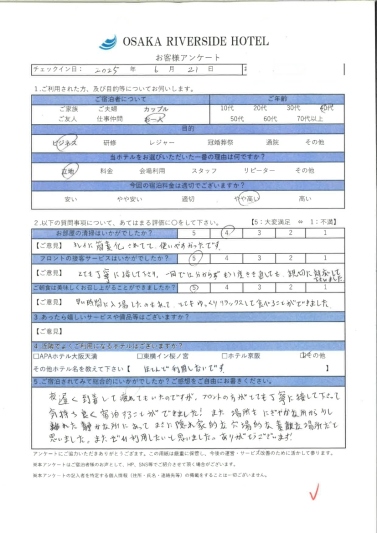 OSAKA RIVERSIDE HOTEL
お客様アンケート
チェックイン日： 2025 年 6 月 21 日
1.ご利用された方、及び目的等についてお伺いします。
ご宿泊者について ご年齢
ご家族 ご夫婦 カップル 10代 20代 30代 40代
ご友人 仕事仲間 お一人 50代 60代 70代以上
目的
ビジネス 研修 レジャー 冠婚葬祭 通院 その他
当ホテルをお選びいただいた一番の理由は何ですか？
立地 料金 会場利用 スタッフ リピーター その他
今回の宿泊料金は適切でございますか？
安い やや安い 適切 やや高い 高い
2.以下の質問事項について、あてはまる評価に○をして下さい。 【5：大変満足 ⇔ 1：不満】
お部屋の清掃はいかがでしたか？ 5 4 3 2 1
【ご意見】 されてて、使いやすかったです。
フロントの接客サービスはいかがでしたか？ 5 4 3 2 1
【ご意見】 とても丁寧に接して下さり、
ご朝食は美味しくお召し上がることができましたか？ 5 4 3 2 1
【ご意見】 ゆっくりリラックスして食べることができました
3.あったら嬉しいサービスや備品等はございますか？
【ご意見】
4.近隣でよくご利用になるホテルはございますか？
□APAホテル大阪天満 □東横イン桜ノ宮 □ホテル京阪 その他
その他ホテル名を教えて下さい 【 ほとんど利用しないです 】
5.ご宿泊されてみて総合的にいかがでしたか？ご感想をご自由にお書きください。
夜遅く到着して疲れていたのですが、フロントの方がとても丁寧に接して下さって
気持ち良く宿泊することができました！また場所もにぎやかな所から少し
離れた静かな所にあって まさに隠れ家的な穴場的な素敵な場所だと
思いました。またぜひ利用したいと思いました。ありがとうございます！
アンケートにご協力いただきありがとうございます。この用紙は厳重に保管し、今後の運営・サービス改善のために活かして参ります。
※本アンケートはご宿泊者様のお声として、HP、SNS等でご紹介させて頂く場合がございます。
※本アンケートの記入者を特定する個人情報（住所・氏名・連絡先等）の掲載をすることは一切ございません。